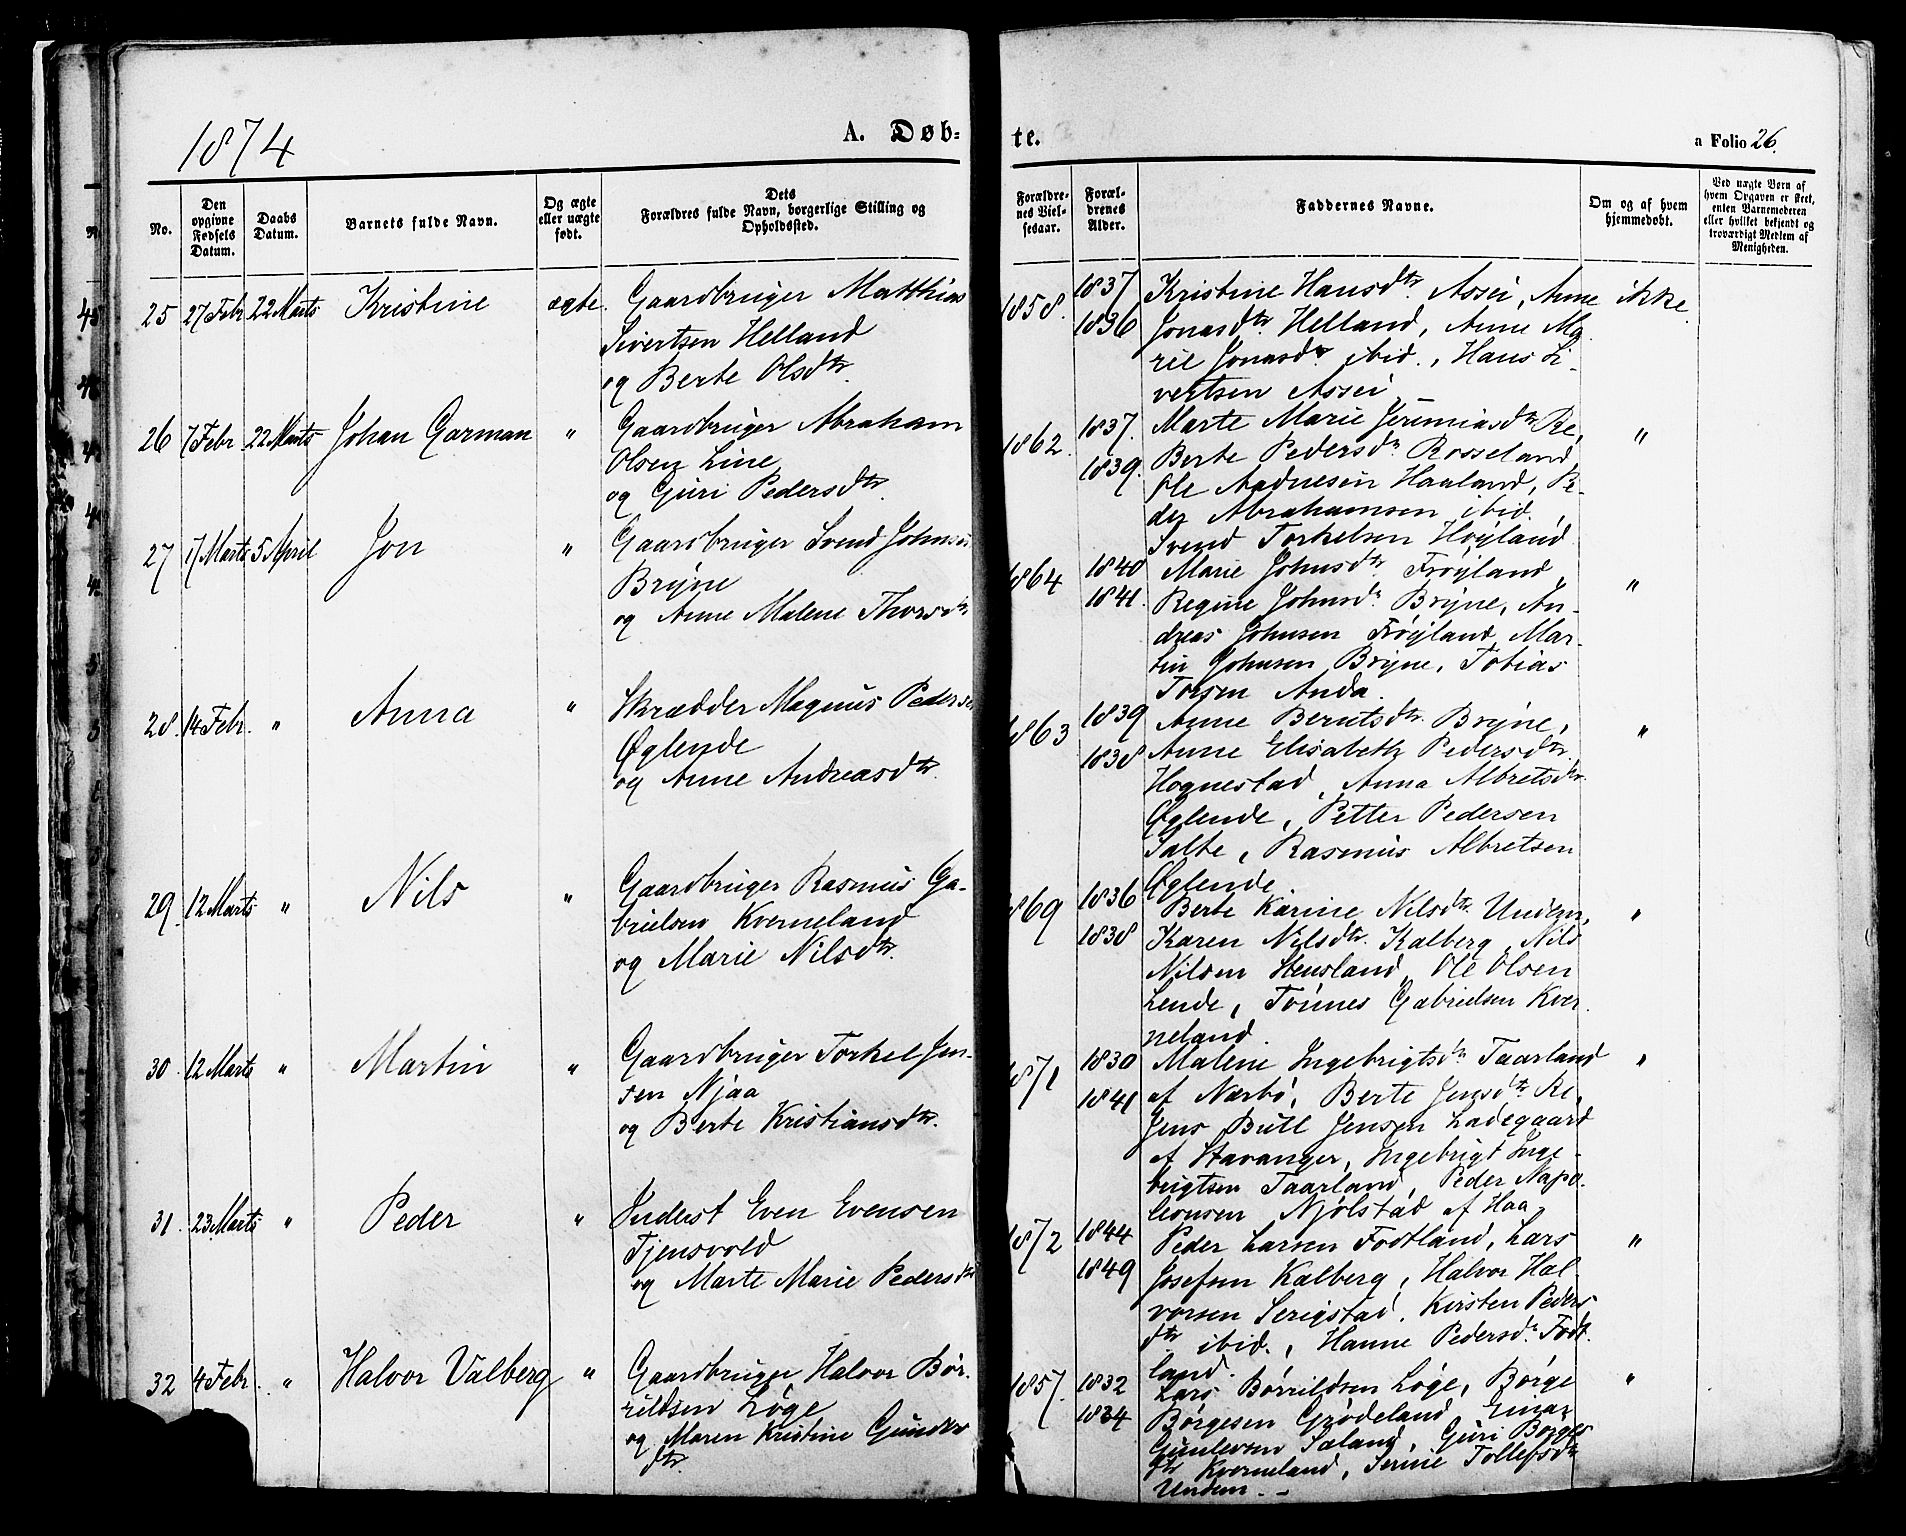 1874
A. Døb-
te.
a Folio 26.
No.
Den opgivne Fødsels Datum.
Daabs Datum.
Barnets fulde Navn.
Og ægte eller uægte født.
Dets Forældres fulde Navn, borgerlige Stilling og Opholdssted.
Forældrenes Vielsesaar.
Forældrenes Alder.
Faddernes Navne.
Om og af hvem hjemmedøbt.
Ved uægte Børn af hvem Opgaven er skeet, enten Barnemoderen eller hvilket bekjendt og troværdigt Medlem af Menigheden.
25 27 Febr 22 Marts Kristine ægte.
Gaardbruger Matthias
Sivertsen Helland
og Berte Olsdtr.
1858. 1837 1836
Kristine Hansdtr. Assei, Anne
Jonasdtr Helland, Anne Ma
rie Jonasdtr ibid., Hans Si-
vertsen Assei
ikke.
26 7 Febr 22 Marts Johan Garman "
Gaardbruger Abraham
Olsen Line
og Guri Pedersdtr.
1862. 1837. 1839.
Marte Marie Jeremiasdtr Re,
Berte Pedersdtr Rosseland
Ole Aadnesen Haaland, Pe-
der Abrahamsen ibid.,
Svend Torkelsen Høyland.
"
27 17 Marts 5 April Jon "
Gaardbruger Svend Johnsen
Bryne
og Anne Malene Thorsdtr
1864 1840 1841.
Marie Johnsdtr Frøyland,
Regine Johnsdr. Bryne, An-
dreas Johnsen Frøyland, Mar-
tin Johnsen Bryne, Tobias
Torsen Anda.
"
28. 14 Febr. " Anna "
Skrædder Magnus Peders
Øglende
og Anne Andreasdtr.
1863 1839 1838
Anne Berntsdtr. Bryne,
Anne Elisabeth Pedersdtr.
Hognestad, Anna Albretsdtr.
Øglende, Petter Pedersen
Salte, Rasmus Albretsen
Øglende.
"
29. 12 Marts " Nils "
Gaardbruger Rasmus Ga-
brielsen Kverneland
og Marie Nilsdtr.
1869 1836 1838
Berte Karine Nilsdtr. Undem,
Karen Nilsdtr. Kalberg, Nils
Nilsen Stensland, Ole Olsen
Lende, Tønnes Gabrielsen Kver
neland.
"
30. 12 Marts " Martin "
Gaardbruger Torkel Jen-
sen Njaa
og Berte Kristiansdtr.
1871 1830 1841
Malene Ingebrigtsdtr Taarland
af Nærbø, Berte Jensdtr Re,
Jens Bull Jensen Ladegaard
af Stavanger, Ingebrigt Inge-
brigtsen Taarland, Peder Napo-
leonsen Njølstad af Haa,
"
31. 23 Marts " Peder "
Inderst Even Evensen
Tjensvold
og Marte Marie Pedersdtr
1872 1844 1849
Peder Larsen Fodtland, Lars
Josefsen Kalberg, Halvor Hal-
vorsen Serigstad, Kirsten Peders-
dtr ibid., Hanne Pedersdr. Fodt-
land.
"
32 4 Febr. " Halvor Valberg "
Gaardbruger Halvor Bør-
rildsen Løge
og Maren Kristine Gunders
dtr.
1857. 1832 1834
Lars Børrildsen Løge, Børge
Børgesen Grødeland, Einar
Gunlevsen Sæland, Guri Børges
dtr Kverneland, Serine Tollefsdtr
Undem. - -
"